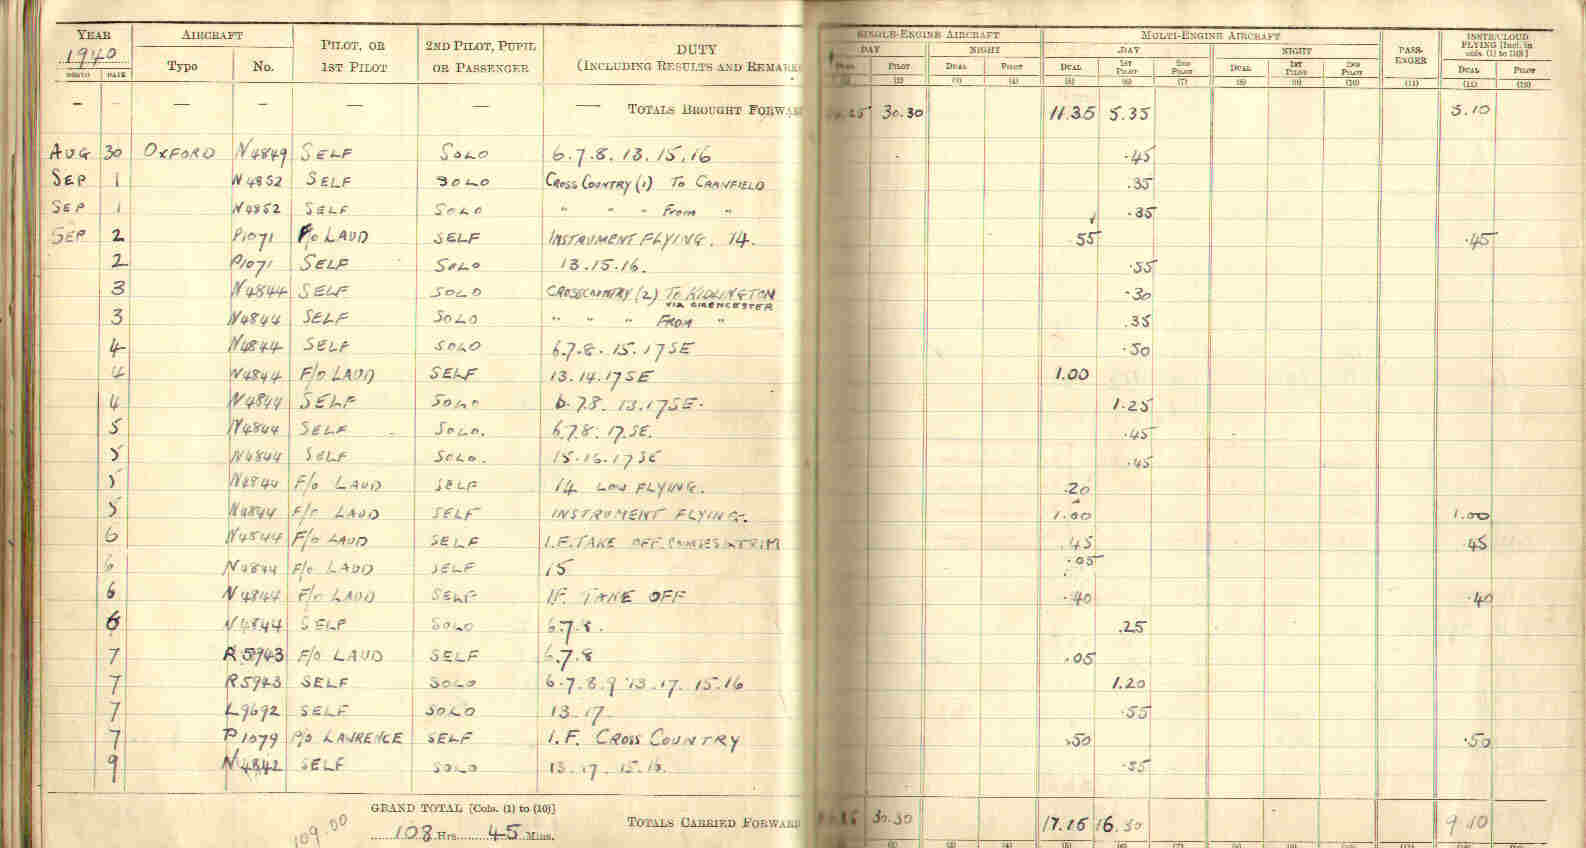 YEAR AIRCRAFT PILOT, OR 2ND PILOT, PUPIL DUTY SINGLE-ENGINE AIRCRAFT MULTI-ENGINE AIRCRAFT PASS- INSTR/CLOUD
1940 Type No. 1ST PILOT OR PASSENGER (INCLUDING RESULTS AND REMARKS DAY NIGHT DAY NIGHT ENGER FLYING [Incl. in
MONTH DATE PILOT DUAL PILOT DUAL 1ST PILOT 2ND PILOT DUAL 1ST PILOT 2ND PILOT cols. (1) to (10)] DUAL PILOT
(2) (3) (4) (5) (6) (7) (8) (9) (10) (11) (11) (12)
— — — — — — — TOTALS BROUGHT FORWARD 30.30 11.35 5.35 5.10
AUG 30 OXFORD N4849 SELF SOLO 6.7.8.13.15.16 .45
SEP 1 N4852 SELF SOLO CROSS COUNTRY (1) TO CRANFIELD .35
SEP 1 N4852 SELF SOLO " " " From " .35
SEP 2 P1071 F/O LAUD SELF INSTRUMENT FLYING. 14. 55 .45
2 P1071 SELF SOLO 13.15.16. .55
3 N4844 SELF SOLO CROSSCOUNTRY (2) TO KIDLINGTON .30
VIA CIRENCESTER
3 N4844 SELF SOLO " " " FROM " .35
4 N4844 SELF SOLO 6.7.8.15.17SE .50
4 N4844 F/O LAUD SELF 13.14.17SE 1.00
4 N4844 SELF SOLO 6.7.8.13.17SE. 1.25
5 N4844 SELF SOLO. 6.7.8.17.SE. .45
5 N4844 SELF SOLO. 15.16.17SE .45
5 N4844 F/O LAUD SELF 14 LOW FLYING. .20
5 N4844 F/O LAUD SELF INSTRUMENT FLYING. 1.00 1.00
6 N4844 F/O LAUD SELF I.F. TAKE OFF TRIM .45 .45
6 N4844 F/O LAUD SELF 15 .05
6 N4844 F/O LAUD SELF IF. TAKE OFF .40 .40
6 N4844 SELF SOLO 6.7.8. .25
7 R5943 F/O LAUD SELF 6.7.8 .05
7 R5943 SELF SOLO 6.7.8.9 13.17.15.16 1.20
7 L9692 SELF SOLO 13.17. .55
7 P1079 P/O LAWRENCE SELF I.F. CROSS COUNTRY .50 .50
9 N4842 SELF SOLO 13.17.15.16. .55
GRAND TOTAL [Cols. (1) to (10)]
109.00 108 Hrs. 45 Mins. TOTALS CARRIED FORWARD 30.30 17.15 16.30 9.10